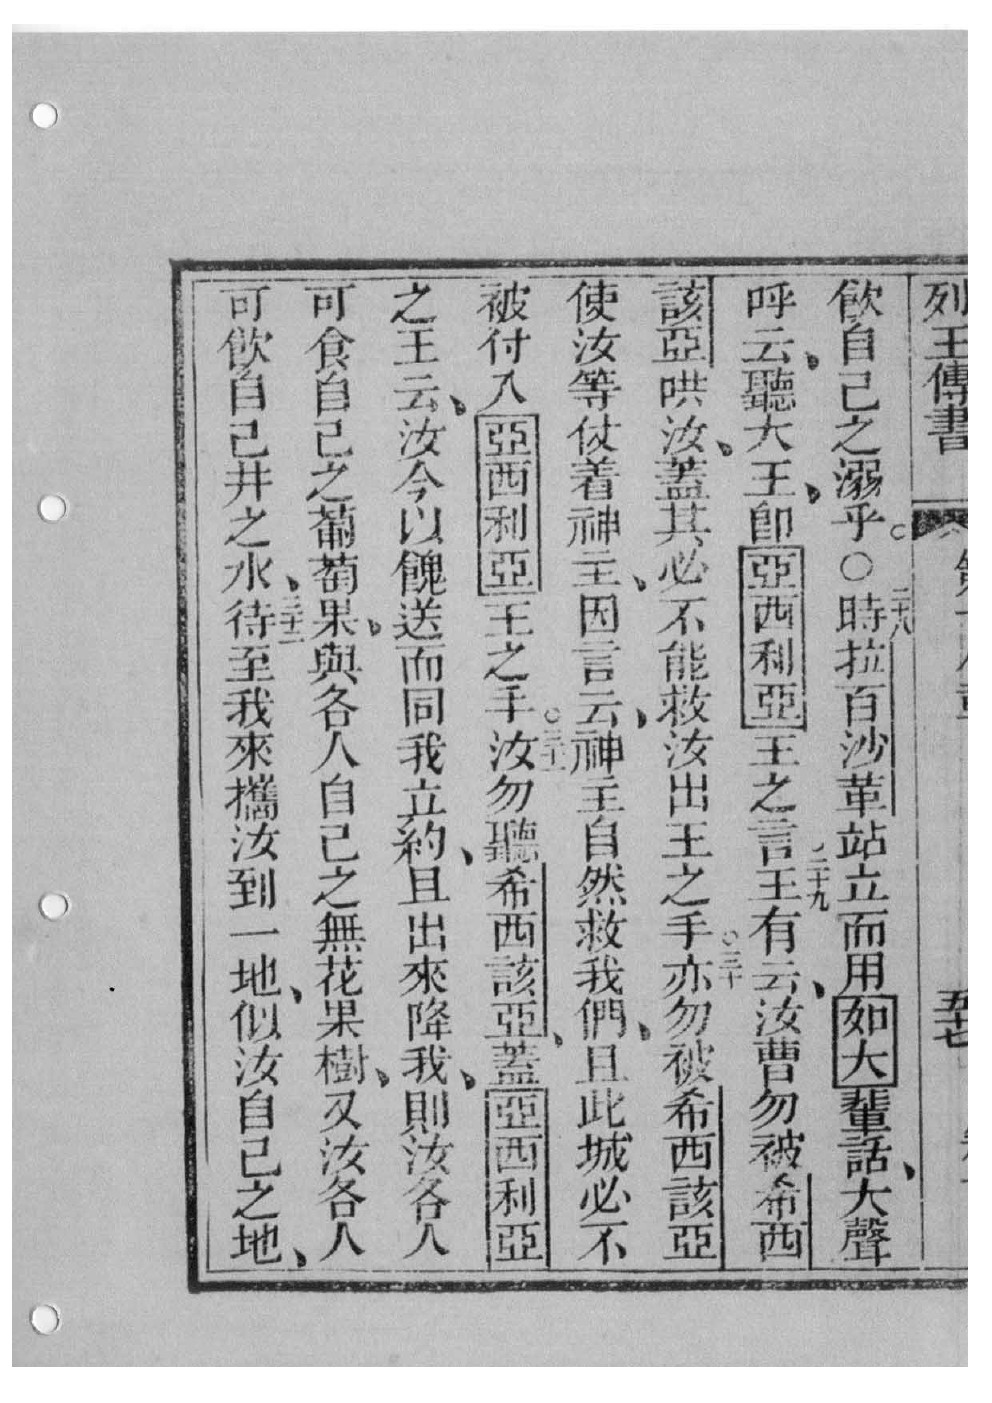 列王傳書 五十七
飲自己之溺乎○二十八時拉百沙革站立而用如大輩話、大聲
呼云、聽大王、即亞西利亞王之言二十九王有云、汝曹勿被希西
該亞哄汝、蓋其必不能救汝出王之手○三十亦勿被希西該亞
使汝等仗着神主、因言云、神主自然救我們、且此城必不
被付入亞西利亞王之手○三十一汝勿聽希西該亞、蓋亞西利亞
之王云、汝今以餽送而同我立約、且出來降我、則汝各人
可食自己之葡萄果、與各人自己之無花果樹、又汝各人
可飲自己井之水、三十二待至我來攜汝到一地、似汝自己之地、